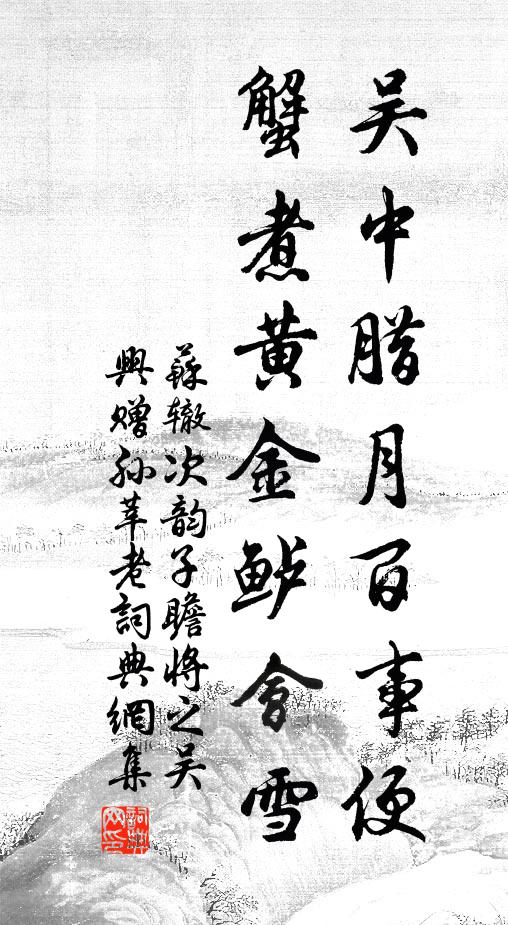 吴中腊月百事便
蟹煮黄金鲈会雪
蘇辙次韵子瞻将之吴
興赠孙莘老詞典網集